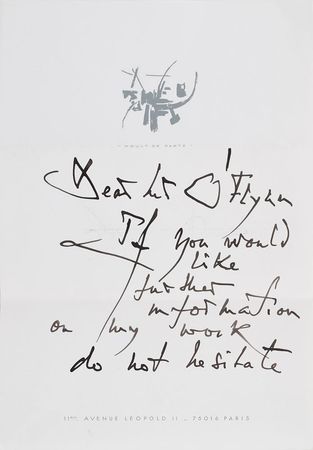 Dear Mr O'Flynn
If you would
like
further
information
on my work
do not hesitate
AVENUE LEOPOLD II _ 75016 PARIS